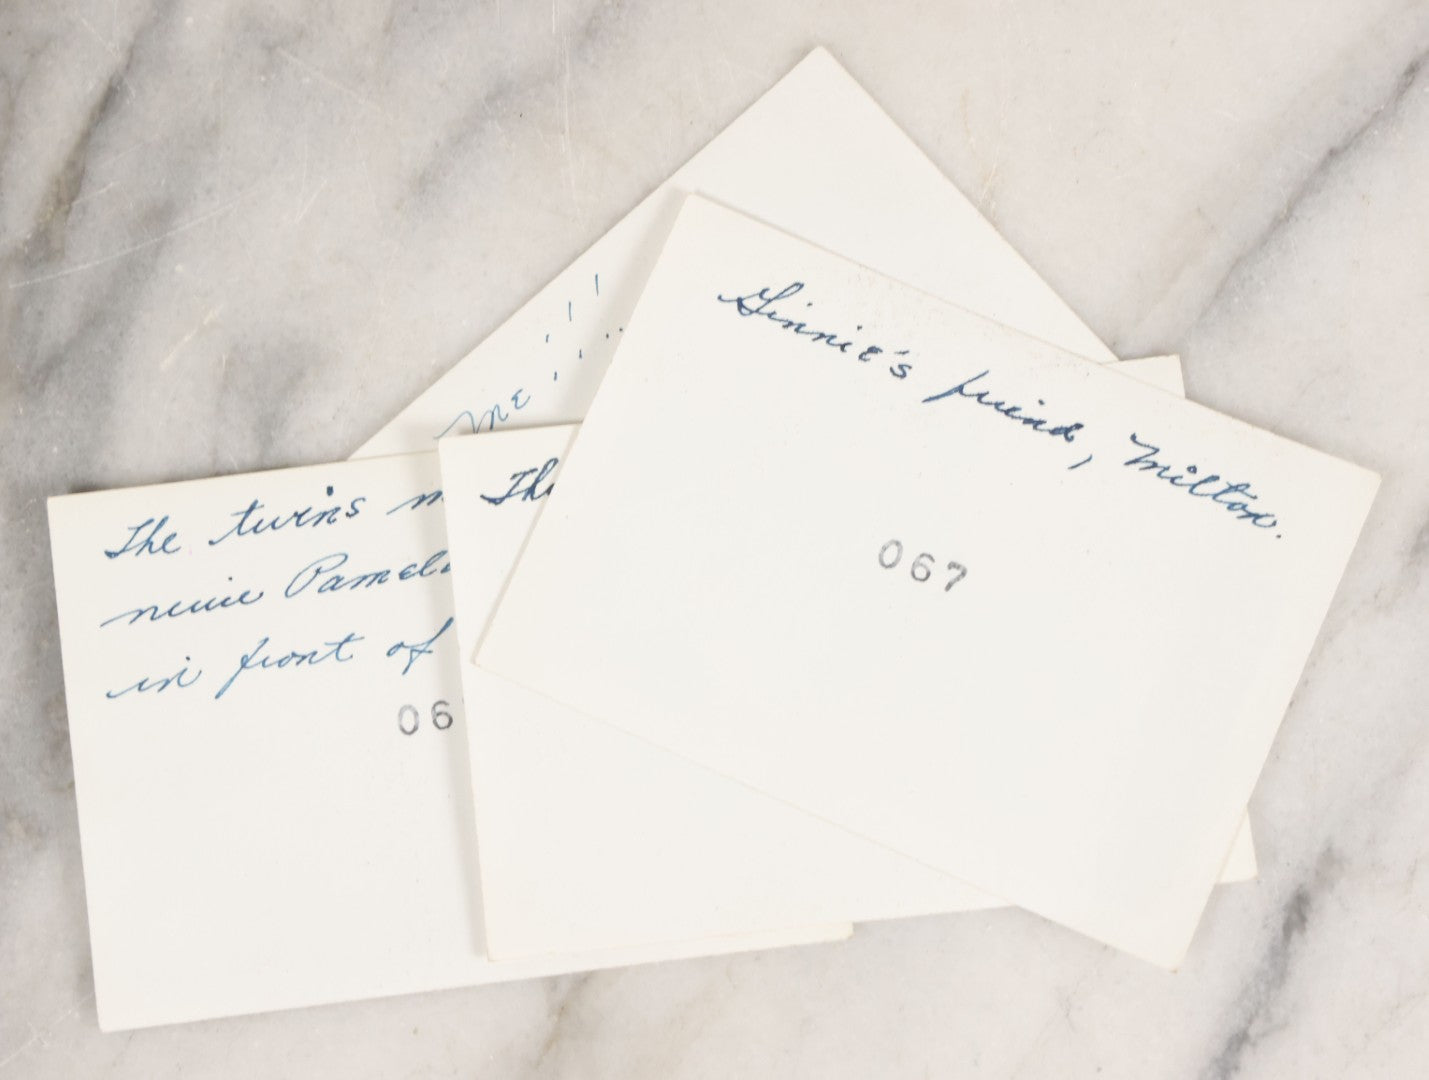 me!!!...
The twins
niece Pamela
in front of
06
The
Ginnie's friend, Milton.
067